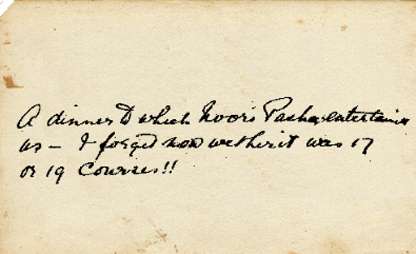 A dinner to which Noori Pasha entertained
us – I forget now wether it was 17
or 19 Courses!!